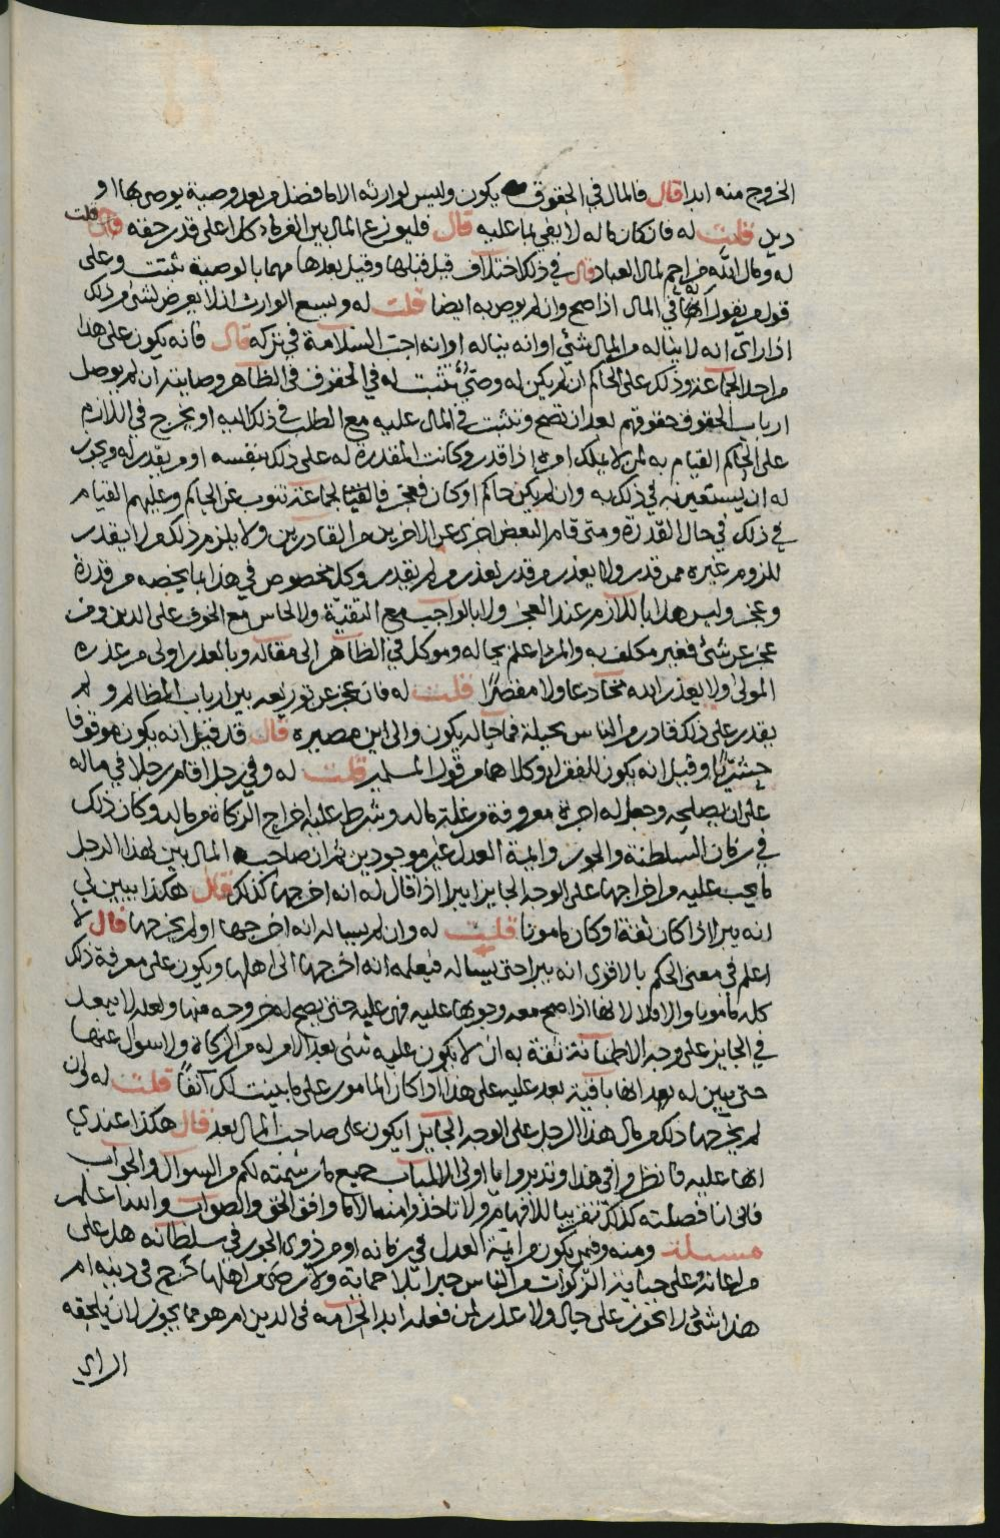 الخروج منه ابدا قال فالمال في الحقوق يكون وليس لوارثه الا ما فضل من بعد وصية يوصي بها او
دين قلت له فان كان ماله لا يفي بما عليه قال فليوزع المال بين الغرماء كلا على قدر حقه قلت
له ومال الله مزاحم لمال العباد قال في ذلك اختلاف قيل قبلها وقيل بعدها مهما بالوصية ثبتت وعلى
قول من يقول انها في المال اذا صح وان لم يوص به ايضا قلت له ويسع الوارث ان لا يعرض لشئ من ذلك
اذا راى انه لا يناله من المال شئ او انه يناله او انه احب السلامة في تركه قال فانه يكون على هذا
من احد الجماعة وذلك على الحاكم ان لم يكن له وصي تثبت له في الحقوق في الظاهر وصايته ان لم يوصل
ارباب الحقوق حقوقهم بعد ان تصح وتثبت في المال عليه مع الطلب في ذلك اليه او يخرج في اللازم
على الحاكم القيام به لمن لا يملك امره اذا قدر وكانت المقدرة له على ذلك بنفسه او من يقدر له ويجوز
له ان يستعين به في ذلك به وان لم يكن حاكم او كان فعجز فالجماعة تنوب عن الحاكم وعليهم القيام
في ذلك في حال القدرة ومتى قام البعض اجزى عن الاخرين من القادرين ولا يلزم ذلك من لا يقدر
للزوم غيره ممن قدر ولا يعذر من قدر بعذر من لم يقدر وكل مخصوص في هذا بما يخصه من قدرة
وعجز وليس هذا باللازم عند العجز ولا بالواجب مع التقية ولا الخاس مع الخوف على الدين ومن
عجز عن شئ فغير مكلف به والمرء اعلم بحاله وموكل في الظاهر الى مقاله وبالعذر اولى من عذره
المولى ولا يعذر الله مخادعا ولا مقصرا قلت له فان عجز عن توزيعه بين ارباب المظالم ولم
يقدر على ذلك قادر من الناس بحيلة فما حاله يكون والى اين مصيره قال قد قيل انه يكون موقوفا
حشريا وقيل انه يكون للفقراء وكلاهما من قول المسلمين قلت له وفي رجل اقام رجلا في ماله
على ان يصلحه وجعل له اجرة معروفة من غلة ماله وشرط عليه اخراج الزكاة من ماله وكان ذلك
في زمان السلطنة والجور وايمة العدل غير موجودين ثم ان صاحب المال بين لهذا الرجل
ما يجب عليه من اخراجها على الوجه الجايز ايبرا اذا قال له انه اخرجها كذلك قال هكذا يبين لي
انه يبرا اذا كان ثقة او كان مامونا قلت له وان لم يساله انه اخرجها او لم يخرجها قال لا
اعلم في معنى الحكم بالاقوى انه يبرا حتى يساله فيعلمه انه اخرجها الى اهلها ويكون على معرفة ذلك
كله مامونا والا فلا لانها اذا صح معه وجوبها عليه فهي عليه حتى يصح له خروجه منها ولعله لا يبعد
في الجايز على وجه الاطمانة ثقة به ان لا يكون عليه شئ بعد الامر له من الزكاة ولا سوال عنها
حتى يبين له بعد انها باقية بعد عليه على هذا اذا كان المامور على ما بينت لك آنفا قلت له وان
لم يخرجها ذلك من مال هذا الرجل على الوجه الجايز ايكون على صاحب المال بعد قال هكذا عندي
انها عليه فانظروا في هذا وتدبروا يا اولي الالباب جميع ما رسمته لكم من السوال والجواب
فاني انا فصلته كذلك تقريبا للافهام ولا تاخذوا منه الا ما وافق الحق والصواب والله اعلم
مسئلة ومنه وفيمن يكون من ايمة العدل في زمانه او من ذوي الجور في سلطانه هل على
من اعانه وعلى جباية الزكوات من الناس جبرا بلا حماية ولا رضى من اهلها حرج في دينه ام
هذا شئ لا يجوز على حال ولا عذر لمن فعله ابدا لحرامه في الدين ام هو مما يجوز لان يلحقه
الراي